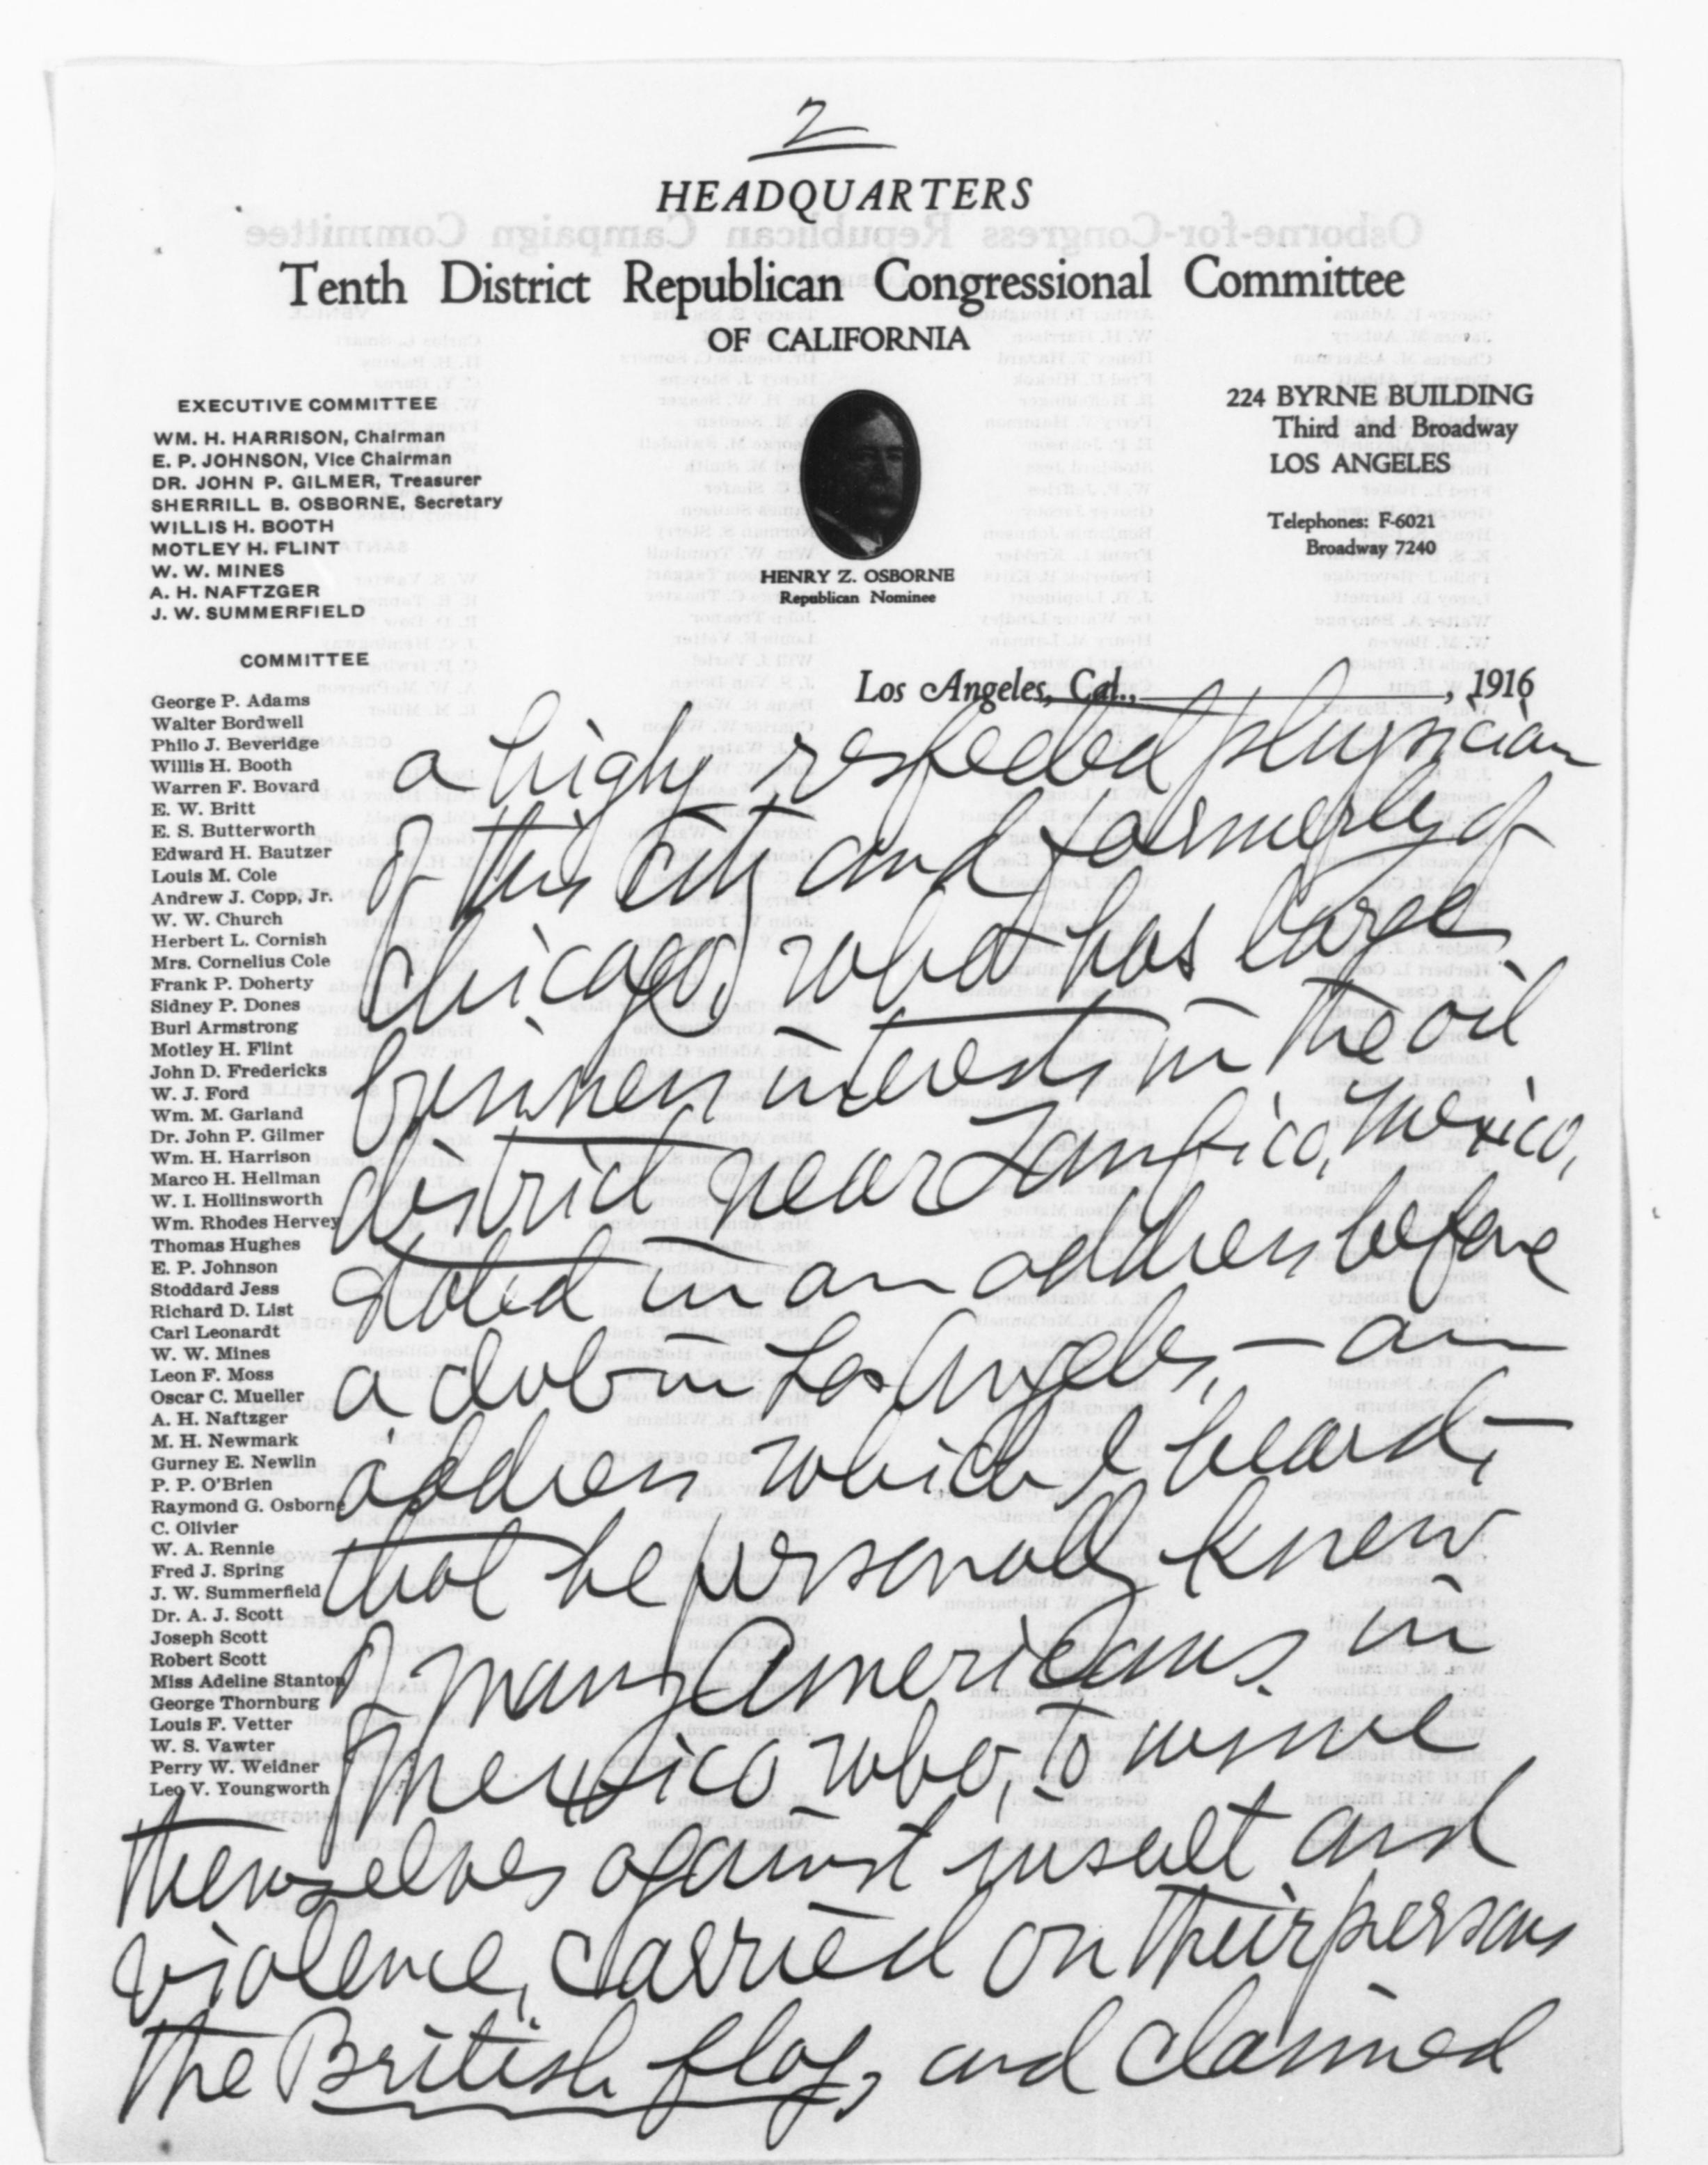 2
HEADQUARTERS
Tenth District Republican Congressional Committee
OF CALIFORNIA
EXECUTIVE COMMITTEE
WM. H. HARRISON, Chairman
E. P. JOHNSON, Vice Chairman
DR. JOHN P. GILMER, Treasurer
SHERRILL B. OSBORNE, Secretary
WILLIS H. BOOTH
MOTLEY H. FLINT
W. W. MINES
A. H. NAFTZGER
J. W. SUMMERFIELD
HENRY Z. OSBORNE
Republican Nominee
224 BYRNE BUILDING
Third and Broadway
LOS ANGELES
Telephones: F-6021
Broadway 7240
COMMITTEE
George P. Adams
Walter Bordwell
Philo J. Beveridge
Willis H. Booth
Warren F. Bovard
E. W. Britt
E. S. Butterworth
Edward H. Bautzer
Louis M. Cole
Andrew J. Copp, Jr.
W. W. Church
Herbert L. Cornish
Mrs. Cornelius Cole
Frank P. Doherty
Sidney P. Dones
Burl Armstrong
Motley H. Flint
John D. Fredericks
W. J. Ford
Wm. M. Garland
Dr. John P. Gilmer
Wm. H. Harrison
Marco H. Hellman
W. I. Hollinsworth
Wm. Rhodes Hervey
Thomas Hughes
E. P. Johnson
Stoddard Jess
Richard D. List
Carl Leonardt
W. W. Mines
Leon F. Moss
Oscar C. Mueller
A. H. Naftzger
M. H. Newmark
Gurney E. Newlin
P. P. O'Brien
Raymond G. Osborne
C. Olivier
W. A. Rennie
Fred J. Spring
J. W. Summerfield
Dr. A. J. Scott
Joseph Scott
Robert Scott
Miss Adeline Stanton
George Thornburg
Louis F. Vetter
W. S. Vawter
Perry W. Weidner
Leo V. Youngworth
Los Angeles, Cal., , 1916
a highly respected physician
of this City and formerly of
Chicago, who has large
business interests in the oil
district near Tampico, Mexico,
stated in an address before
a club in Los Angeles, — an
address which I heard, —
that he personally knew
of many Americans in
Mexico who, to insure
themselves against insult and
violence, carried on their persons
the British flag, and claimed